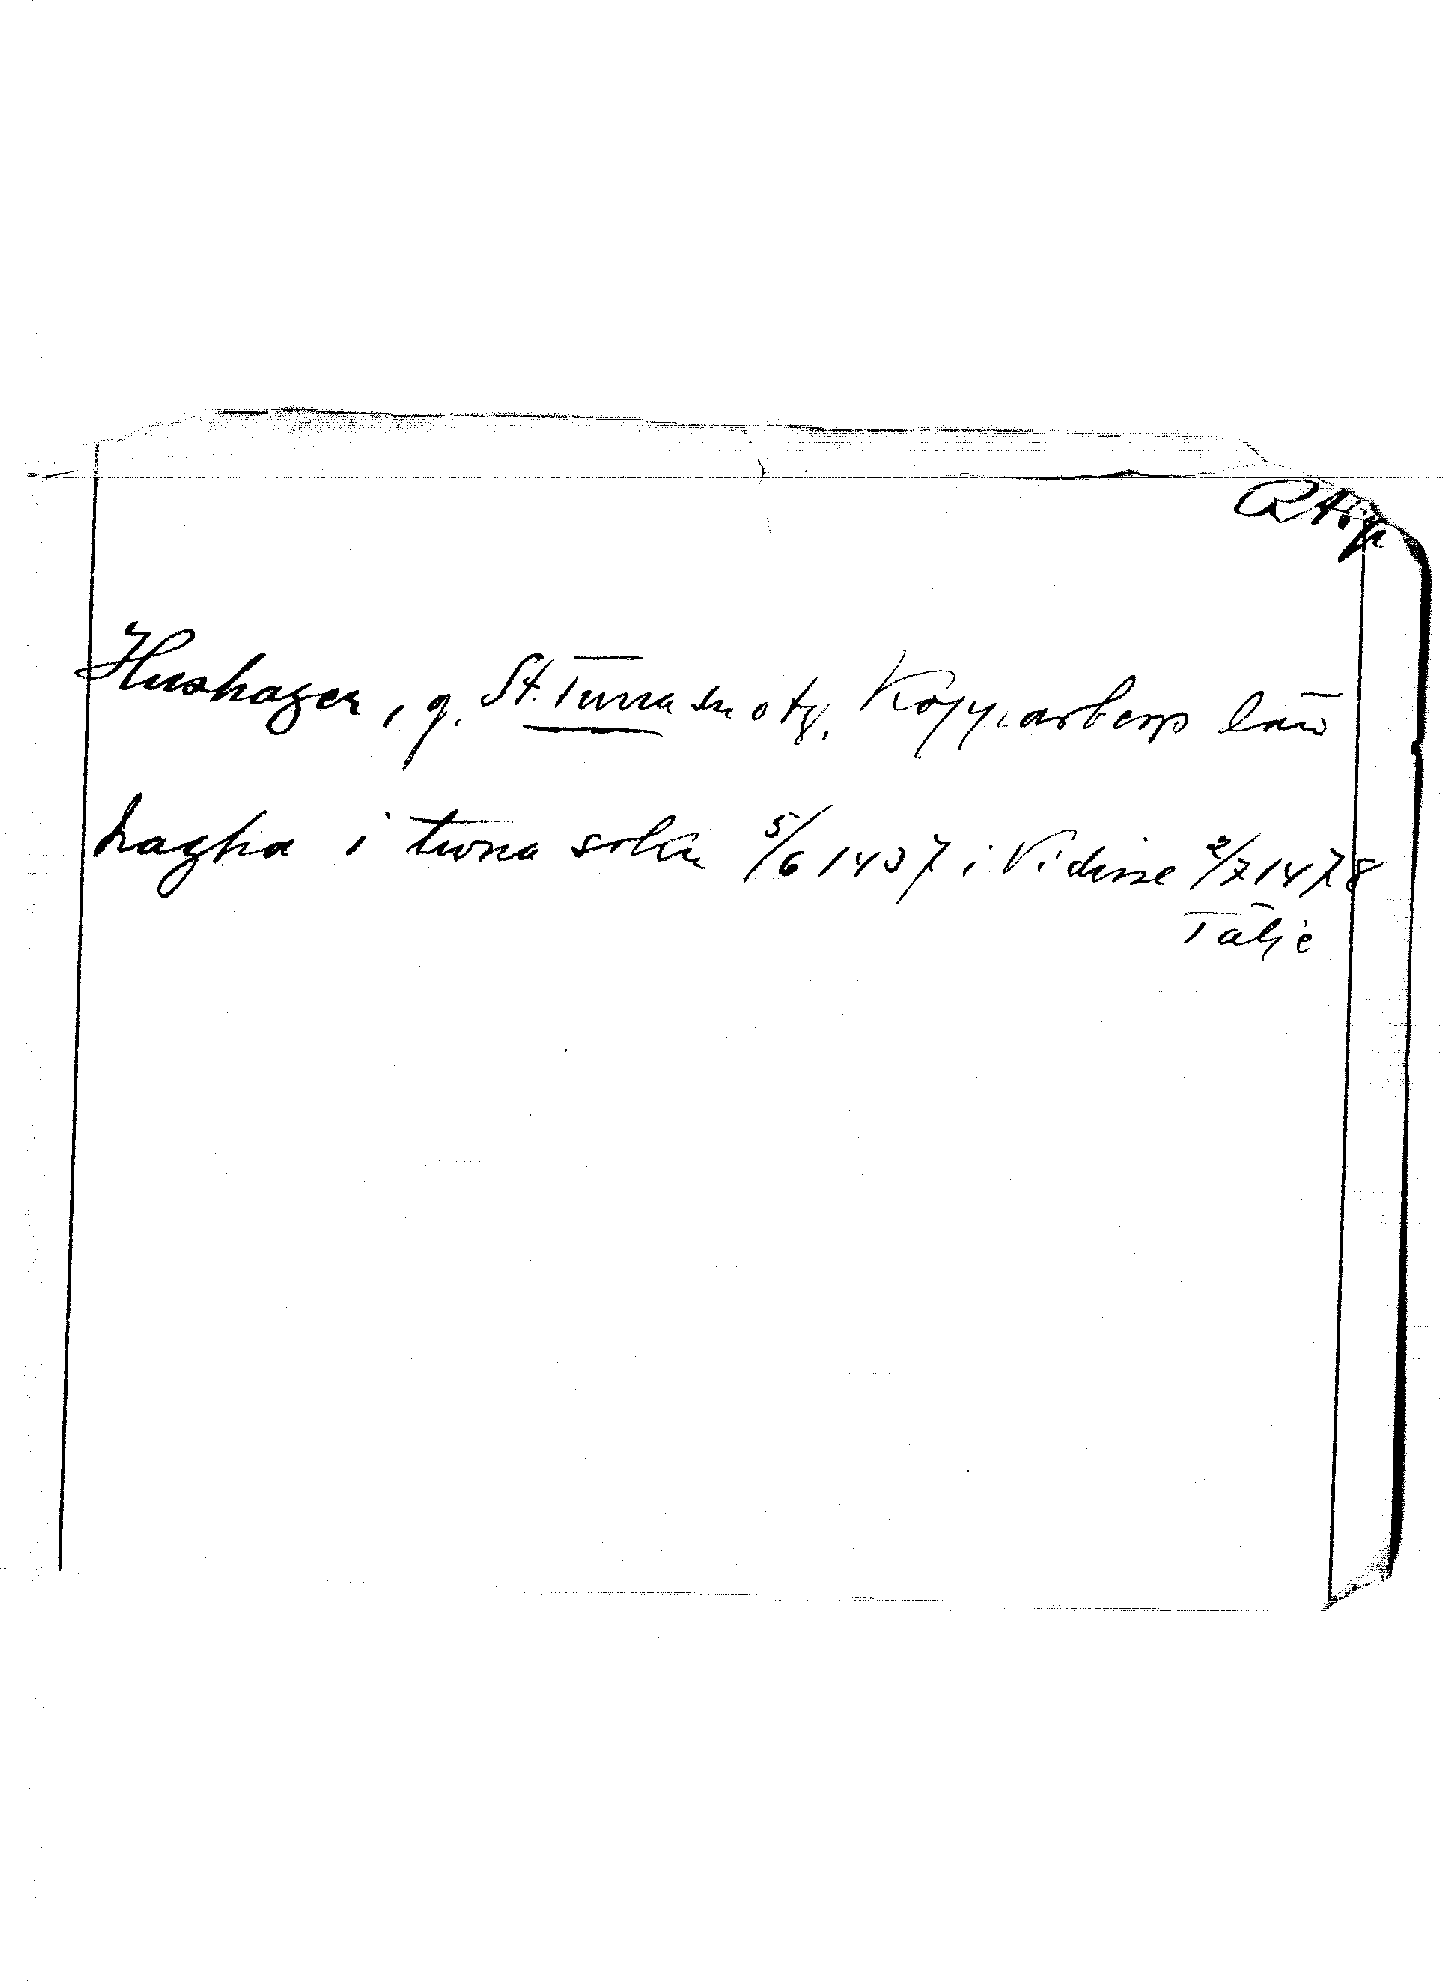 Hushagen, g. St. Tuna sn o tg. Kopparbergs län
hagha i tuna sokn 5/6 1437 i Vidisse 2/7 1478
Tälje